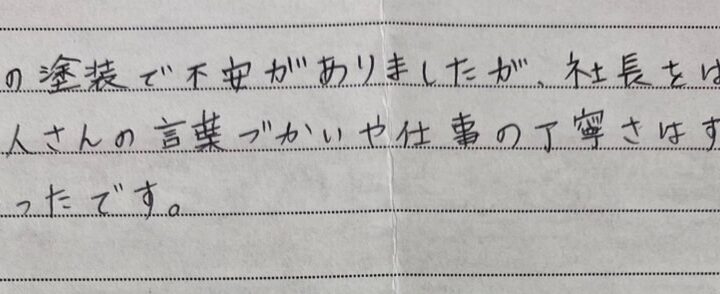 の塗装で不安がありましたが、社長をは
人さんの言葉づかいや仕事の丁寧さはす
ったです。